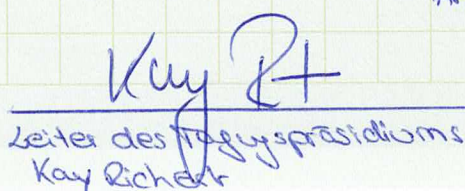 Kay Rt
Leiter des Tagungspräsidiums
Kay Richert